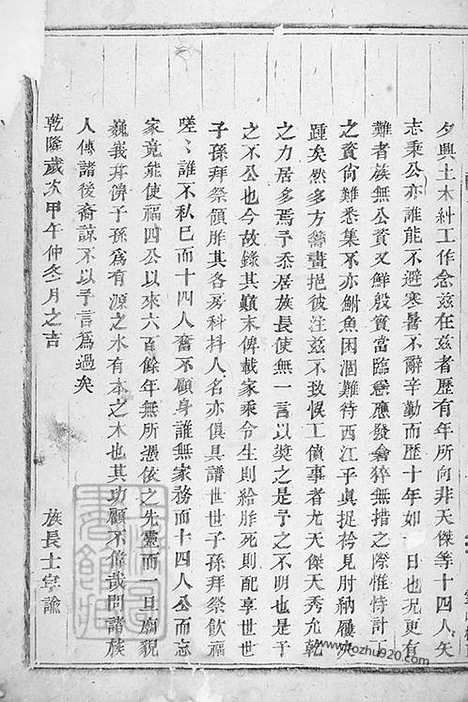 夕興土木糾工作念兹在兹者歷有年所向非天傑等十四人矢
志秉公亦誰能不避寒暑不辭辛勤而歷十年如一日也况更有
難者族無公資又鮮殷實當臨戀應發兪猝無措之際惟恃計丁
之資尚難悉集不亦鮒魚困涸難待西江乎眞捉衿見肘納屨決
踵矣然多方籌畫挹彼注兹不致悮工僨事者尤天傑天秀允乾
之力居多焉予忝居族長使無一言以奖之是予之不明也是于
之不公也今故錄其巔末俾載家乘令生則給胙死則配享世世
子孫拜祭領胙其各房科抖人名亦俱具譜世世子孫拜祭飲福
嗟嗟誰不私已而十四人奮不顧身誰無家務而十四人公而忘
家竟能使福四公以來六百餘年無所憑依之先靈而一旦廟貌
巍我俾子孫爲有源之水有本之木也其功顧不偉哉問諸族
人傳諸後裔諒不以予言爲過矣
乾隆歲次甲午仲冬月之吉
族長士寧諭
www.tozhu920.com